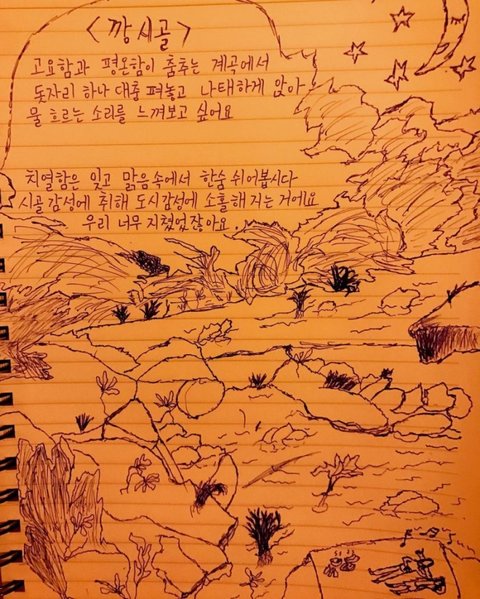 <깡시골>
고요함과 평온함이 춤추는 계곡에서
돗자리 하나 대충 펴놓고 나태하게 앉아
물 흐르는 소리를 느껴보고 싶어요
치열함은 잊고 맑음속에서 한숨 쉬어봅시다
시골감성에 취해 도시감성에 소홀해지는 거에요
우리 너무 지쳤었잖아요.